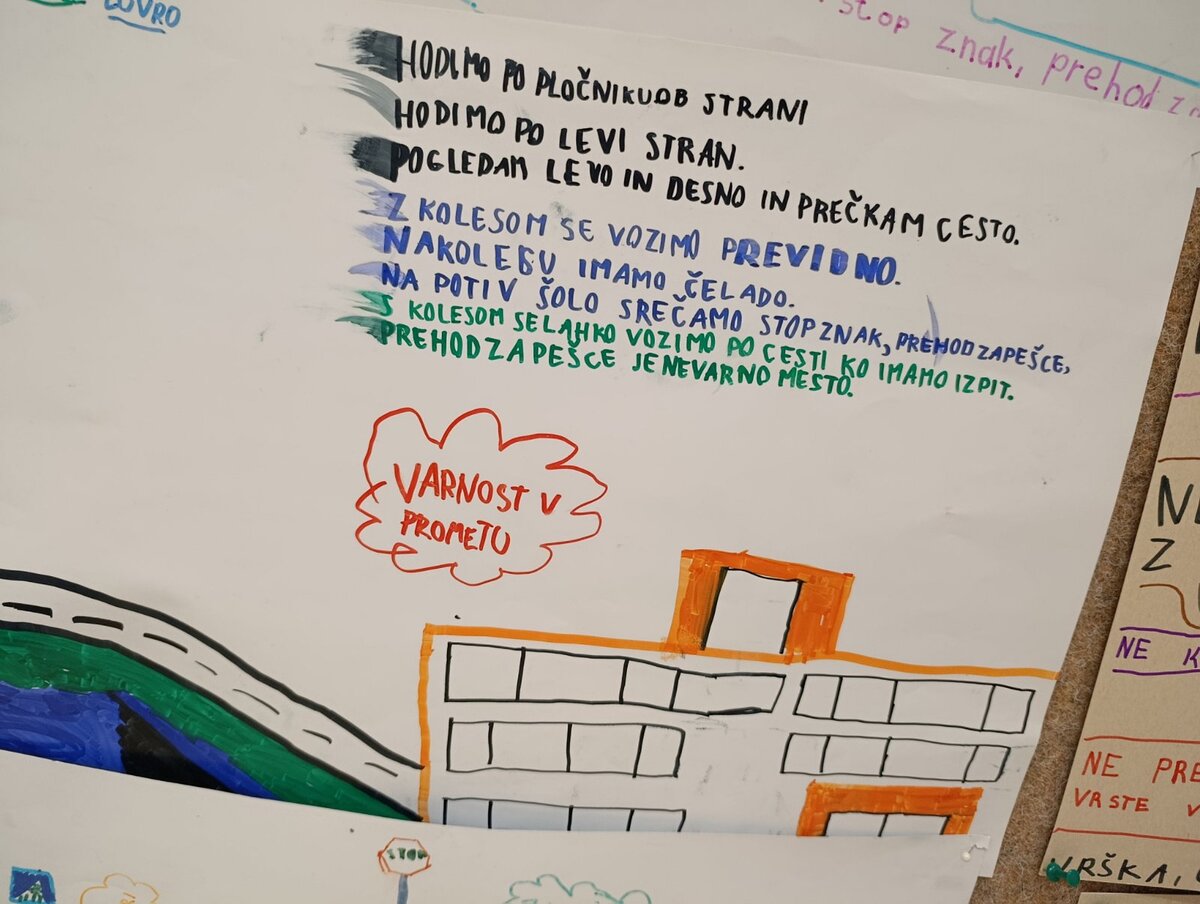 LOVRO
stop znak, prehod
HODIMO PO PLOČNIKUOB STRANI
HODIMO PO LEVI STRAN.
POGLEDAM LEVO IN DESNO IN PREČKAM CESTO.
Z KOLESOM SE VOZIMO PREVIDNO.
NAKOLEBU IMAMO ČELADO.
NA POTI V ŠOLO SREČAMO STOP ZNAK, PREHOD ZAPEŠCE,
S KOLESOM SELAHKO VOZIMO PO CESTI KO IMAMO IZPIT.
PREHOD ZA PEŠCE JENEVARNO MESTO.
VARNOST V
PROMETU
STOP
Z
NE
NE
VRSTE V
VRŠKA,